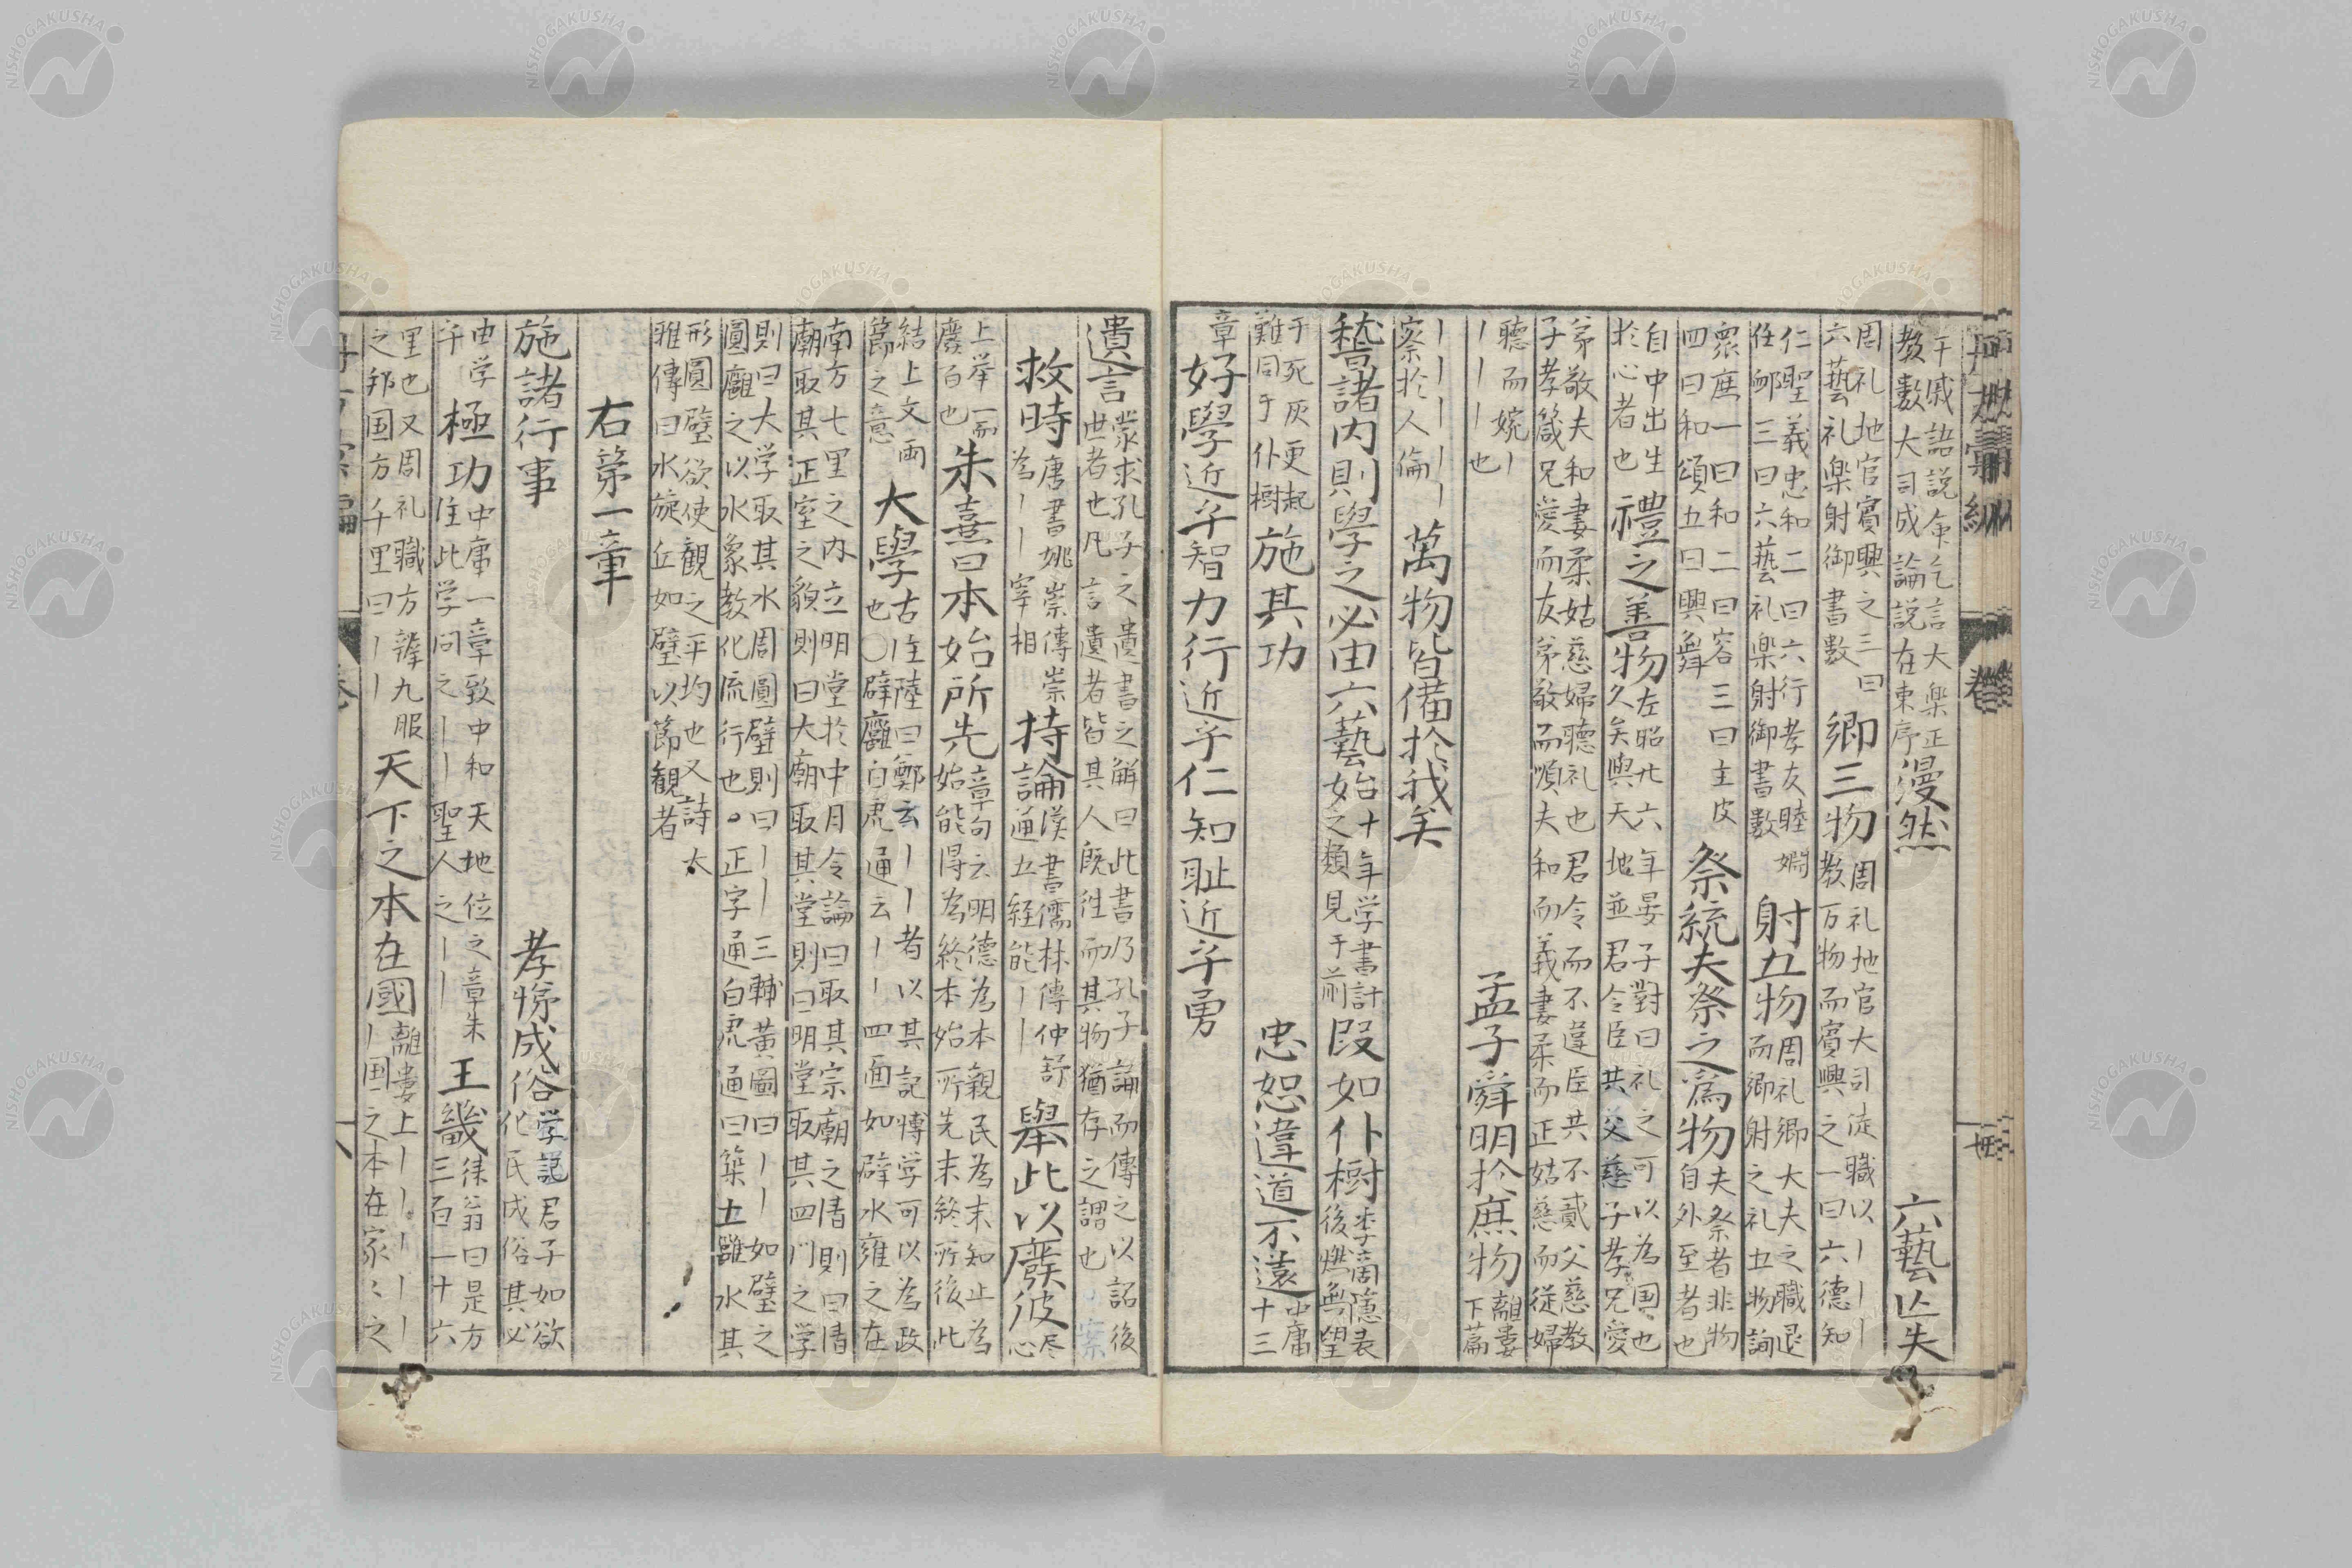 干戚語説命乞言大楽正
教数大司成論説在東序
漫然
六藝亡失
周礼地官賓興之三曰
六藝礼楽射御書數
卿三物
周礼地官大司徒職以丨丨丨
教万物而賓興之一曰六德知
仁聖義忠和二曰六行孝友睦婣
任卹三曰六藝礼楽射御書數
射五物
周礼郷大夫之職退
而郷射之礼五物詢
衆庶一曰和二曰容三曰主皮
四曰和頌五曰興舞
祭統夫祭之為物
夫祭者非物
自外至者也
自中出生
於心者也
禮之善物
左昭廿六年晏子對曰礼之可以為国也
久矣與天地並君令臣共父慈子孝兄愛
弟敬夫和妻柔姑慈婦聽礼也君令而不違臣共不貳父慈教
子孝箴兄愛而友弟敬而順夫和而義妻柔而正姑慈而從婦
聽而婉丨
丨丨丨也
孟子舜明於庶物
離婁
下篇
丨丨丨丨丨
察於人倫
萬物皆備於我矣
稽諸内則學之必由六藝
始十年学書計
始之類見于前
叚如仆樹
李商隱表
後燃無望
于死灰更起
難同于仆樹
施其功
忠恕違道不遠
中庸
十三
章
好學近乎智力行近乎仁知耻近乎勇
遺言
蒙求孔子之遺書之解曰此書乃孔子論而傳之以詔後
世者也凡言遺者皆其人既往而其物猶存之謂也
救時
唐書姚崇傳崇
為丨丨宰相
持論
漢書儒林傳仲舒
通五経能丨丨
舉此以廢彼
尽
心
上挙一而
廢百也
朱熹曰本始所先
章句云明德為本親民為末知止為
始能得為終本始所先末終所後此
結上文両
節之意
大學
古注陸曰鄭云丨丨者以其記博学可以為政
也〇辟廱白虎通云丨丨四面如辟水雍之在
南方七里之内立明堂於中月令論曰取其宗廟之清則曰清
廟取其正室之貌則曰大廟取其堂則曰明堂取其四門之学
則曰大学取其水周圓璧則曰丨丨三輔黄圖曰丨丨如璧之
圓廱之以水象教化流行也。正字通白虎通曰築五雝水其
形圓璧欲使観之平均也又詩大
雅傳曰水旋丘如璧以節観者
右第一章
施諸行事
孝悌成俗
学記君子如欲
化民成俗其必
由学
乎
極功
中庸一章致中和天地位之章朱
注此学問之丨丨聖人之丨丨
王畿
徠翁曰是方
三百一十六
里也又周礼職方辨九服
之邦国方千里曰丨丨
天下之本在國
離婁上丨丨丨丨丨
丨国之本在家〻之